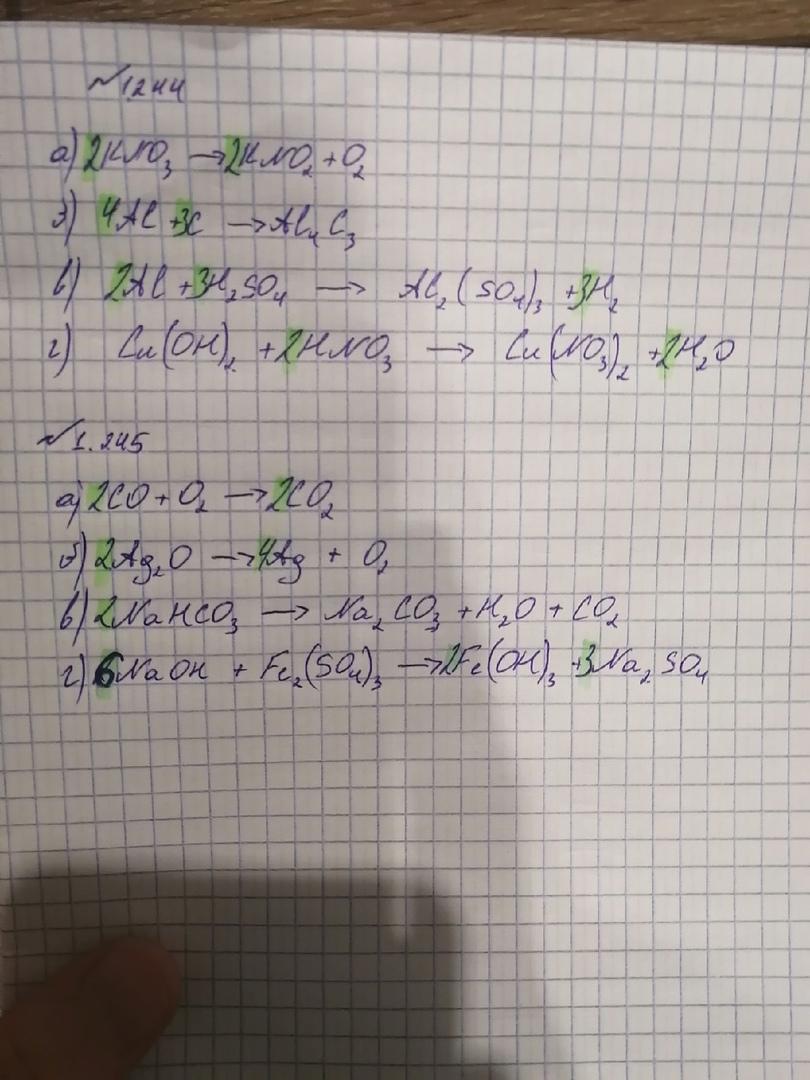 №1244
а) 2KNO₃ → 2KNO₂ + O₂
б) 4Al + 3C → Al₄C₃
в) 2Al + 3H₂SO₄ → Al₂(SO₄)₃ + 3H₂
г) Cu(OH)₂ + 2HNO₃ → Cu(NO₃)₂ + 2H₂O
№1.245
а) 2CO + O₂ → 2CO₂
б) 2Ag₂O → 4Ag + O₂
в) 2NaHCO₃ → Na₂CO₃ + H₂O + CO₂
г) 6NaOH + Fe₂(SO₄)₃ → 2Fe(OH)₃ + 3Na₂SO₄